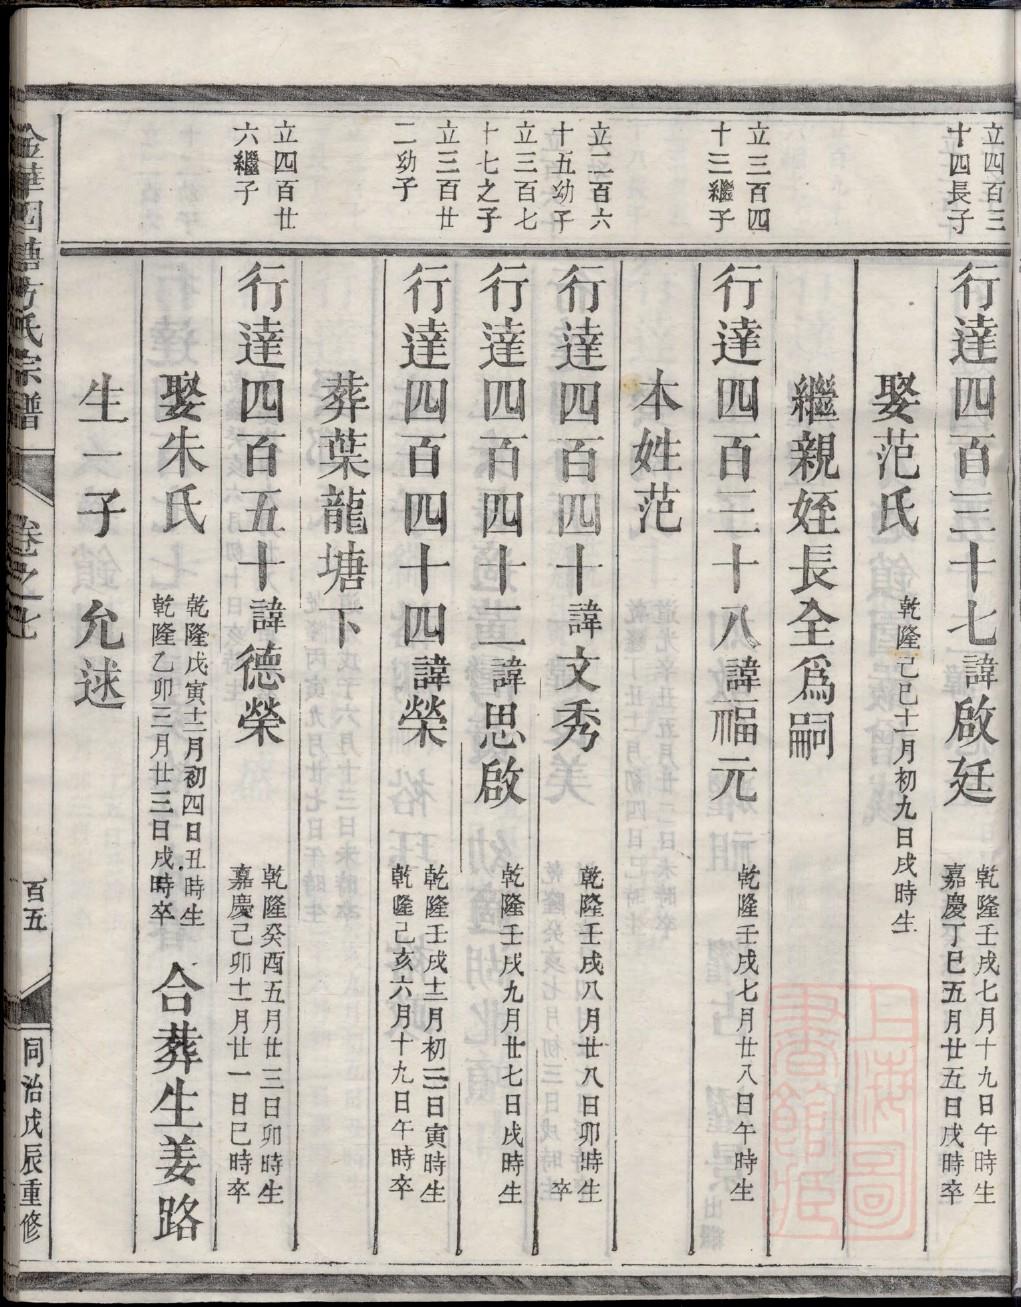 立四百三
十四長子
行達四百三十七諱啟廷
乾隆壬戌七月十九日午時生
嘉慶丁巳五月廿五日戌時卒
娶范氏
乾隆己巳十一月初九日戌時生
繼親姪長全爲嗣
立三百四
十三繼子
行達四百三十八諱福元
乾隆壬戌七月廿八日午時生
本姓范
立三百六
十五幼子
行達四百四十諱文秀
乾隆壬戌八月廿八日卯時生
卒
立三百七
十七之子
行達四百四十二諱思啟
乾隆壬戌九月廿七日戌時生
立三百廿
二幼子
行達四百四十四諱榮
乾隆壬戌十二月初三日寅時生
乾隆己亥六月十九日午時卒
葬葉龍塘下
立四百廿
六繼子
行達四百五十諱德榮
乾隆癸酉五月廿三日卯時生
嘉慶己卯十一月廿一日巳時卒
娶朱氏
乾隆戊寅十二月初四日丑時生
乾隆乙卯三月廿三日戌時卒
合葬生姜路
生一子
允逑
金華
方氏宗譜
卷之七
百五
同治戊辰重修
上海圖
書館藏